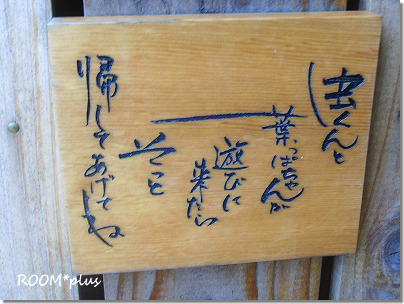 虫くんと
葉っぱちゃんが
遊びに
来たら
そっと
帰してあげてね
ROOM*plus